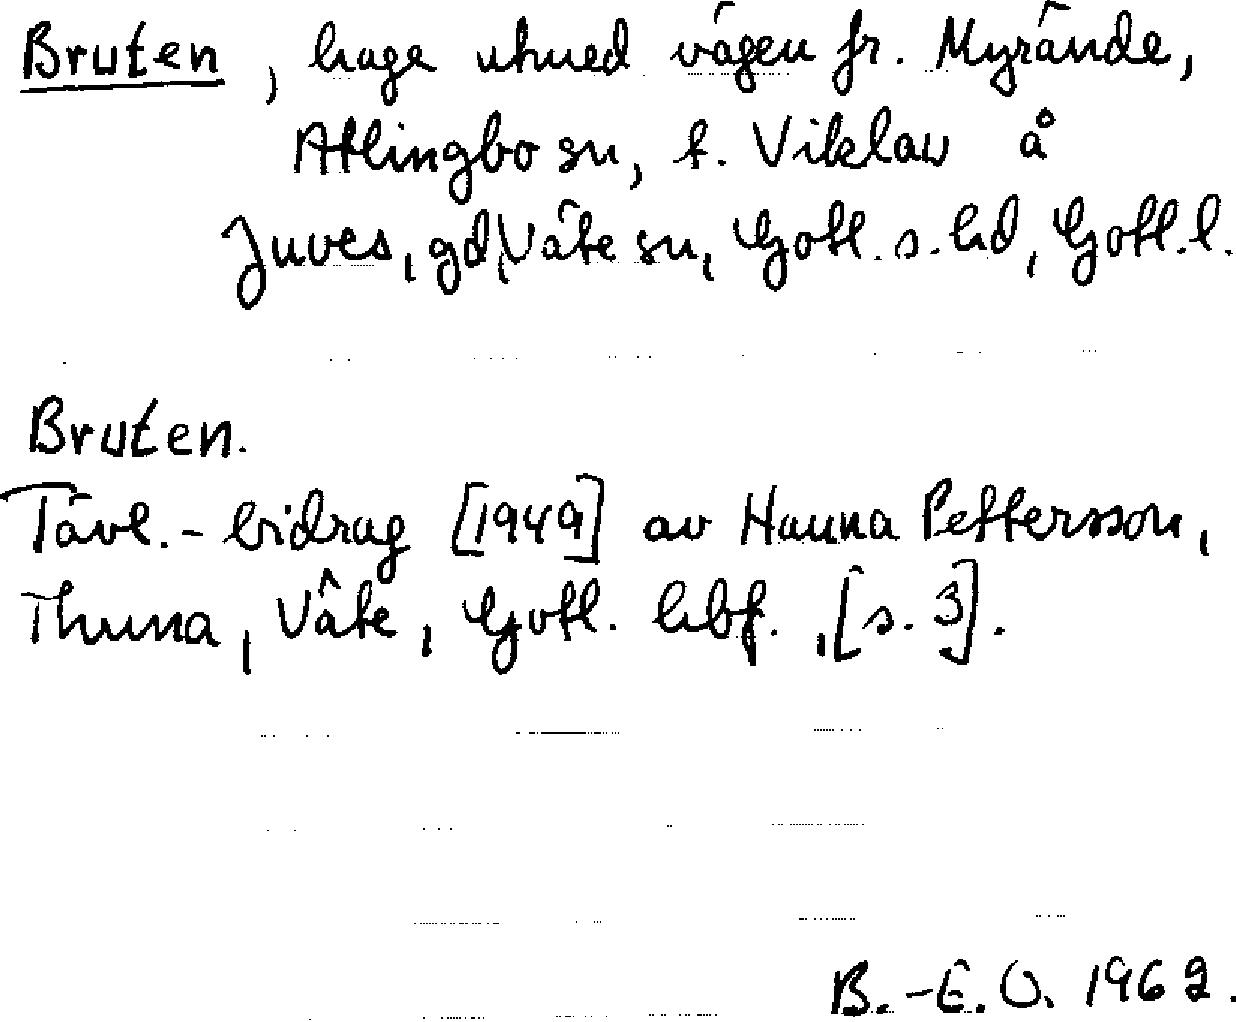 Bruten, hage utmed vägen fr. Myrände,
Atlingbo sn, t. Viklau å
Juves, gd, Väte sn, Gotl. s. hd, Gotl. l.
Bruten.
Tävl.-bidrag [1949] av Hanna Pettersson,
Thuna, Väte, Gotl. hbf., [s. 3].
B.-E. O. 1962.